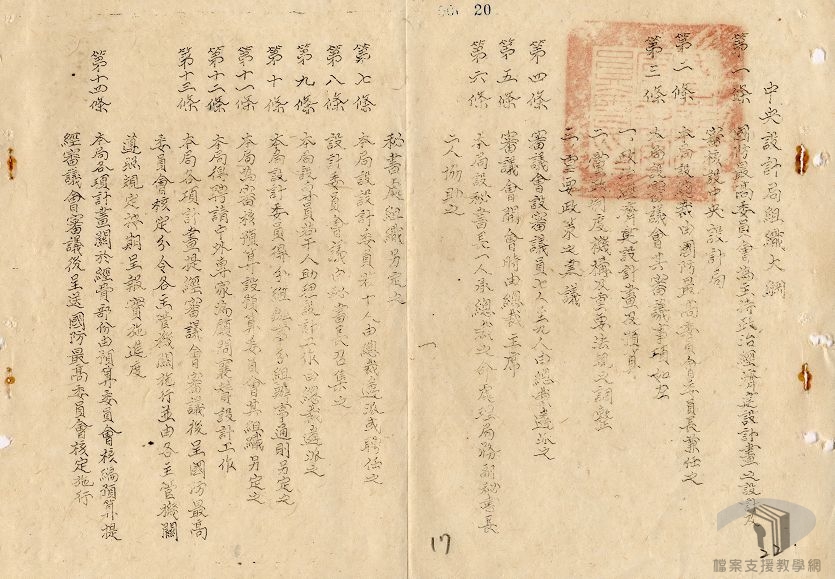 20
中央設計局組織大綱
第一條 國防最高委員會為主持政治經濟建設計畫之設計及
審核設中央設計局
第二條 本局設總裁由國防最高委員會委員長兼任之
第三條 本局設審議會其審議事項如左
一、政治經濟建設計畫及預算
二、黨政制度機構及重要法規之調整
三、重要政策之建議
第四條 審議會設審議員七人至九人由總裁遴派之
第五條 審議會開會時由總裁主席
第六條 本局設秘書長一人承總裁之命處理局務副秘書長
二人協助之
秘書處組織另定之
第七條 本局設設計委員若干人由總裁遴派或聘任之
設計委員會議由秘書長召集之
第八條
第九條 本局設專員若干人助理設計工作由總裁遴派之
第十條 本局設計委員得分組辦事分組辦事通則另定之
第十一條 本局為審核預算設預算委員會其組織另定之
第十二條 本局得聘請中外專家為顧問襄贊設計工作
第十三條 本局各項計畫提經審議會審議後呈國防最高
委員會核定分令各主管機關施行並由各主管機關
遵照規定詳期呈報實施進度
第十四條 本局各項計畫關於經費部份由預算委員會核編預算提
經審議會審議後呈送國防最高委員會核定施行
17
22
檔案支援教學網